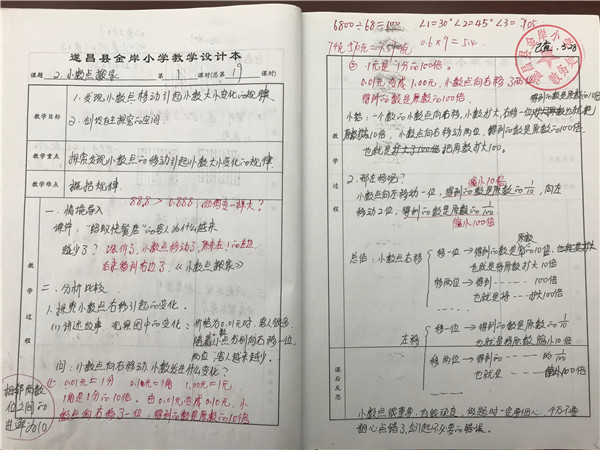 遂昌县金岸小学教学设计本
课题 2.小数点搬家 第 1 课时(总第 19 课时)
教学目标
1.发现小数点移动引起小数大小变化的规律
2.创发自主探索的空间
教学重点 探索发现小数点的移动引起小数大小变化的规律.
教学难点 概括规律.
教学过程
一、情境导入
888 > 0.888
课件:
越少了?
右边 《小数点搬家》
二、分析比较
1.探索小数点右移引起的变化.
(1)讲述故事,观察图中的变化:价格为0.01元时,客人很多,
随着小数点向右移一位,
两位,客人越来越少.
问:小数点向右移动,小数发生什么变化?
① 0.01元=1分 0.10元=1角 1.00元=1元
1角是1分的10倍.由0.01元变成0.10元,小
数点向右移了一位,得到的数是原数的10倍
相邻两数
位之间的
进率为10
6800÷68=100 ∠1=30° ∠2=45° ∠3=105
0.6×9=5.4
已查 5.28
② 1元是1分的100倍.
0.01元变成1.00元,小数点向右移了两位
得到的数是原数的100倍.
得到的数是原数的10倍
小结:一个数的小数点向右移,小数扩大,右移一位
10倍,小数点向右移动两位,得到的数是原数的100倍
也就是 把原数扩大100.
教学过程
2.那左移呢? 缩小10倍
小数点向左移动一位,得到的数是原数的1/10,向左
移动2位,得到的数是原数的1/100
缩小100倍
总结:小数点右移
移一位→得到的数是原数的10倍,
也就是将原数扩大10倍
移两位→得到 100倍
也就是将 扩大100倍
左移
移一位→得到的数是原数的1/10
也就是将原数缩小10倍
移两位→得到的 的1/100
也就是 缩小100倍
课后反思
小数点很重要, 做题时一定要细心,千万不要
粗心点错了,引起不必要的错误.